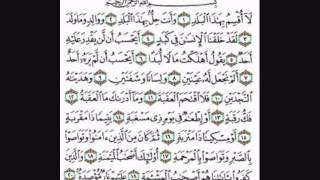 بِسْمِ اللَّهِ الرَّحْمَٰنِ الرَّحِيمِ
لَا أُقْسِمُ بِهَٰذَا الْبَلَدِ ١ وَأَنتَ حِلٌّ بِهَٰذَا الْبَلَدِ ٢ وَوَالِدٍ وَمَا وَلَدَ
٣ لَقَدْ خَلَقْنَا الْإِنسَٰنَ فِي كَبَدٍ ٤ أَيَحْسَبُ أَن لَّن يَقْدِرَ عَلَيْهِ
أَحَدٌ ٥ يَقُولُ أَهْلَكْتُ مَالًا لُّبَدًا ٦ أَيَحْسَبُ أَن لَّمْ يَرَهُ أَحَدٌ
٧ أَلَمْ نَجْعَل لَّهُ عَيْنَيْنِ ٨ وَلِسَانًا وَشَفَتَيْنِ ٩ وَهَدَيْنَٰهُ
النَّجْدَيْنِ ١٠ فَلَا اقْتَحَمَ الْعَقَبَةَ ١١ وَمَا أَدْرَىٰكَ مَا الْعَقَبَةُ ١٢
فَكُّ رَقَبَةٍ ١٣ أَوْ إِطْعَٰمٌ فِي يَوْمٍ ذِي مَسْغَبَةٍ ١٤ يَتِيمًا ذَا مَقْرَبَةٍ
١٥ أَوْ مِسْكِينًا ذَا مَتْرَبَةٍ ١٦ ثُمَّ كَانَ مِنَ الَّذِينَ ءَامَنُوا وَتَوَاصَوْا
بِالصَّبْرِ وَتَوَاصَوْا بِالْمَرْحَمَةِ ١٧ أُولَٰئِكَ أَصْحَٰبُ الْمَيْمَنَةِ ١٨
وَالَّذِينَ كَفَرُوا بِـَٔايَٰتِنَا هُمْ أَصْحَٰبُ الْمَشْـَٔمَةِ ١٩ عَلَيْهِمْ نَارٌ مُّؤْصَدَةٌ ٢٠